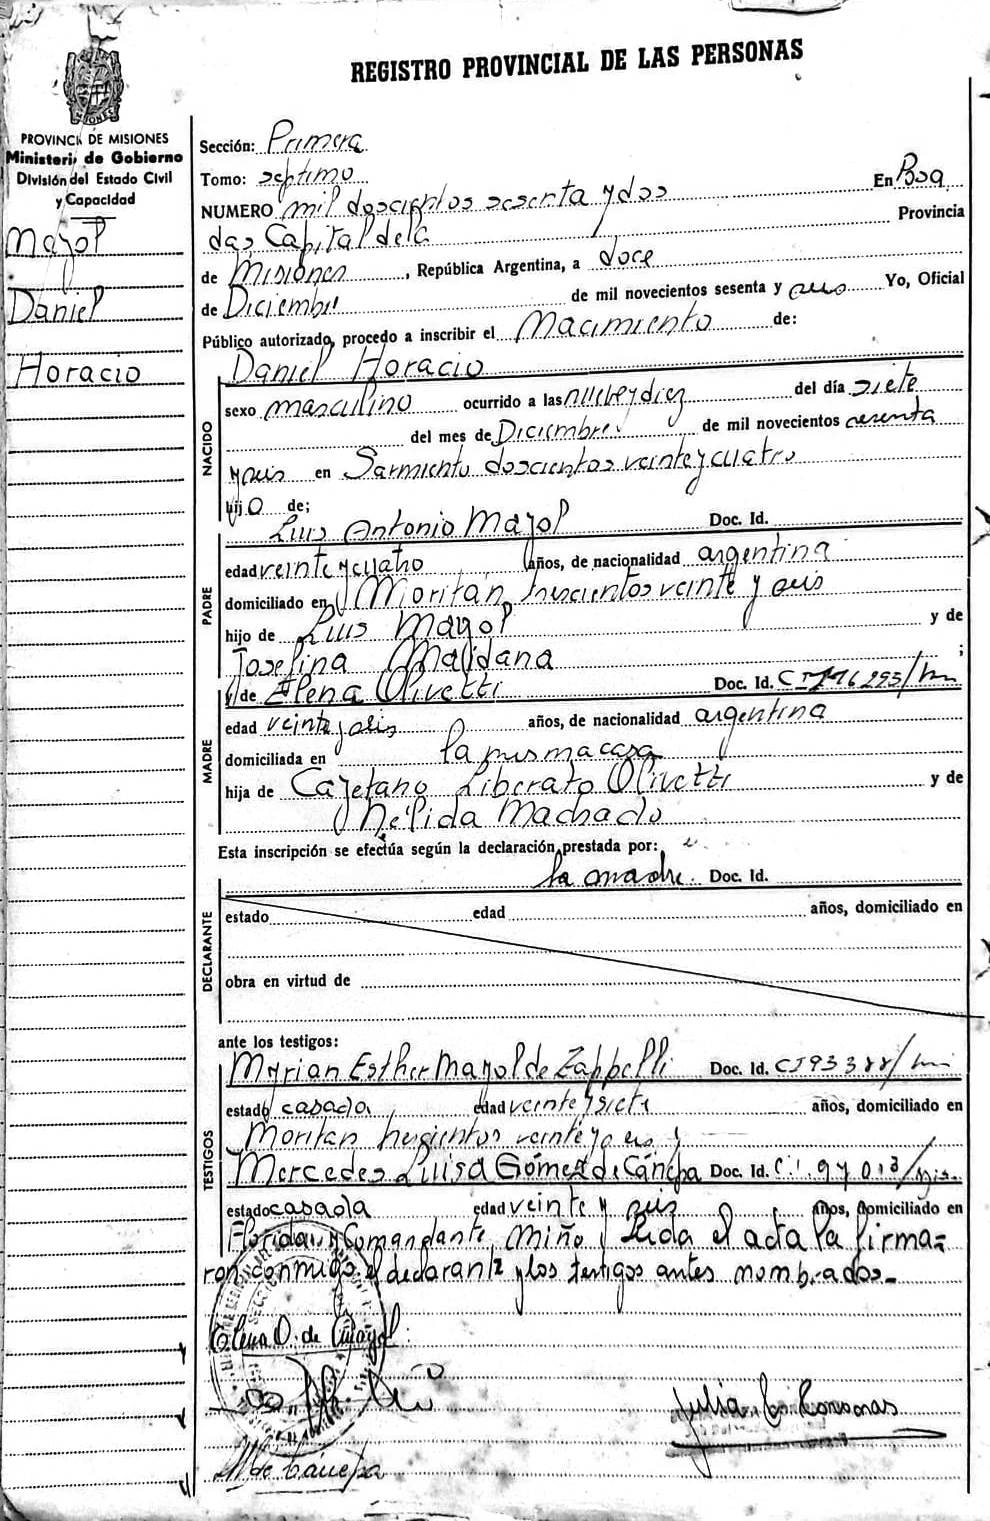 REGISTRO PROVINCIAL DE LAS PERSONAS
PROVINCIA DE MISIONES
Ministerio de Gobierno
División del Estado Civil
y Capacidad
Mayol
Daniel
Horacio
Sección: Primera
Tomo: septimo
En Posa
NUMERO mil doscientos sesenta y dos
das Capital de la Provincia
de Misiones, República Argentina, a doce
de Diciembre de mil novecientos sesenta y seis Yo, Oficial
Público autorizado, procedo a inscribir el Nacimiento de:
Daniel Horacio
NACIDO
sexo masculino ocurrido a las nueve y diez del día siete
del mes de Diciembre de mil novecientos sesenta
y seis en Sarmiento doscientos veinte y cuatro
hijo de;
Luis Antonio Mayol Doc. Id.
PADRE
edad veinte y cuatro años, de nacionalidad argentina
domiciliado en Moritán trescientos veinte y seis
hijo de Luis Mayol y de
Josefina Maidana ;
y de Elena Olivetti Doc. Id.
MADRE
edad veinte y seis años, de nacionalidad argentina
domiciliada en la misma casa
hija de Cayetano Liberato Olivetti y de
Nélida Machado
Esta inscripción se efectúa según la declaración prestada por:
la madre. Doc. Id.
DECLARANTE
estado edad años, domiciliado en
obra en virtud de
ante los testigos:
Myrian Esther Mayol de Zappelli Doc. Id.
TESTIGOS
estado casada edad veinte y siete años, domiciliado en
Moritan trescientos veinte y seis y
Mercedes Luisa Gómez de Cánepa Doc. Id.
estado casada edad veinte y seis años, domiciliado en
Florida y Comandante Miño Leida el acta la firma=
ron conmigo el declarante y los testigos antes nombrados=
Elena O. de Mayol
M de Cánepa